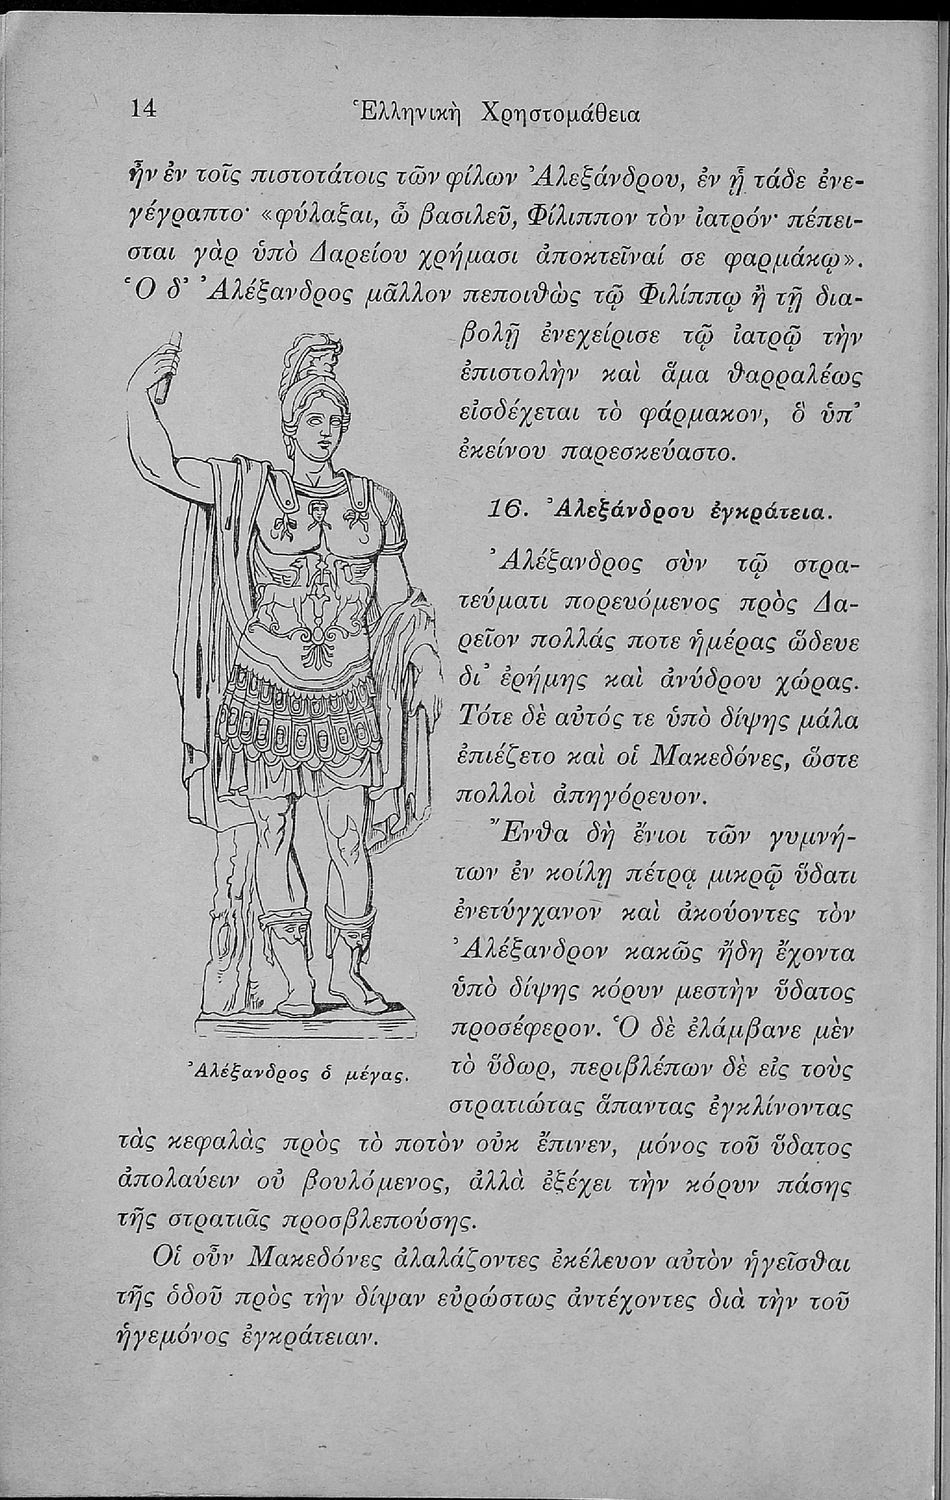 14 Ἑλληνικὴ Χρηστομάθεια
ἦν ἐν τοῖς πιστοτάτοις τῶν φίλων Ἀλεξάνδρου, ἐν ᾗ τάδε ἐνε-
γέγραπτο· «φύλαξαι, ὦ βασιλεῦ, Φίλιππον τὸν ἰατρόν· πέπει-
σται γὰρ ὑπὸ Δαρείου χρήμασι ἀποκτεῖναί σε φαρμάκῳ».
Ὁ δ' Ἀλέξανδρος μᾶλλον πεποιθὼς τῷ Φιλίππῳ ἢ τῇ δια-
βολῇ ἐνεχείρισε τῷ ἰατρῷ τὴν
ἐπιστολὴν καὶ ἅμα θαρραλέως
εἰσδέχεται τὸ φάρμακον, ὃ ὑπ'
ἐκείνου παρεσκεύαστο.
16. Ἀλεξάνδρου ἐγκράτεια.
Ἀλέξανδρος σὺν τῷ στρα-
τεύματι πορευόμενος πρὸς Δα-
ρεῖον πολλάς ποτε ἡμέρας ὥδευε
δι' ἐρήμης καὶ ἀνύδρου χώρας.
Τότε δὲ αὐτός τε ὑπὸ δίψης μάλα
ἐπιέζετο καὶ οἱ Μακεδόνες, ὥστε
πολλοὶ ἀπηγόρευον.
Ἔνθα δὴ ἔνιοι τῶν γυμνή-
των ἐν κοίλῃ πέτρᾳ μικρῷ ὕδατι
ἐνετύγχανον καὶ ἀκούοντες τὸν
Ἀλέξανδρον κακῶς ἤδη ἔχοντα
ὑπὸ δίψης κόρυν μεστὴν ὕδατος
προσέφερον. Ὁ δὲ ἐλάμβανε μὲν
τὸ ὕδωρ, περιβλέπων δὲ εἰς τοὺς
στρατιώτας ἅπαντας ἐγκλίνοντας
τὰς κεφαλὰς πρὸς τὸ ποτὸν οὐκ ἔπινεν, μόνος τοῦ ὕδατος
ἀπολαύειν οὐ βουλόμενος, ἀλλὰ ἐξέχει τὴν κόρυν πάσης
τῆς στρατιᾶς προσβλεπούσης.
Οἱ οὖν Μακεδόνες ἀλαλάζοντες ἐκέλευον αὐτὸν ἡγεῖσθαι
τῆς ὁδοῦ πρὸς τὴν δίψαν εὐρώστως ἀντέχοντες διὰ τὴν τοῦ
ἡγεμόνος ἐγκράτειαν.
Ἀλέξανδρος ὁ μέγας.